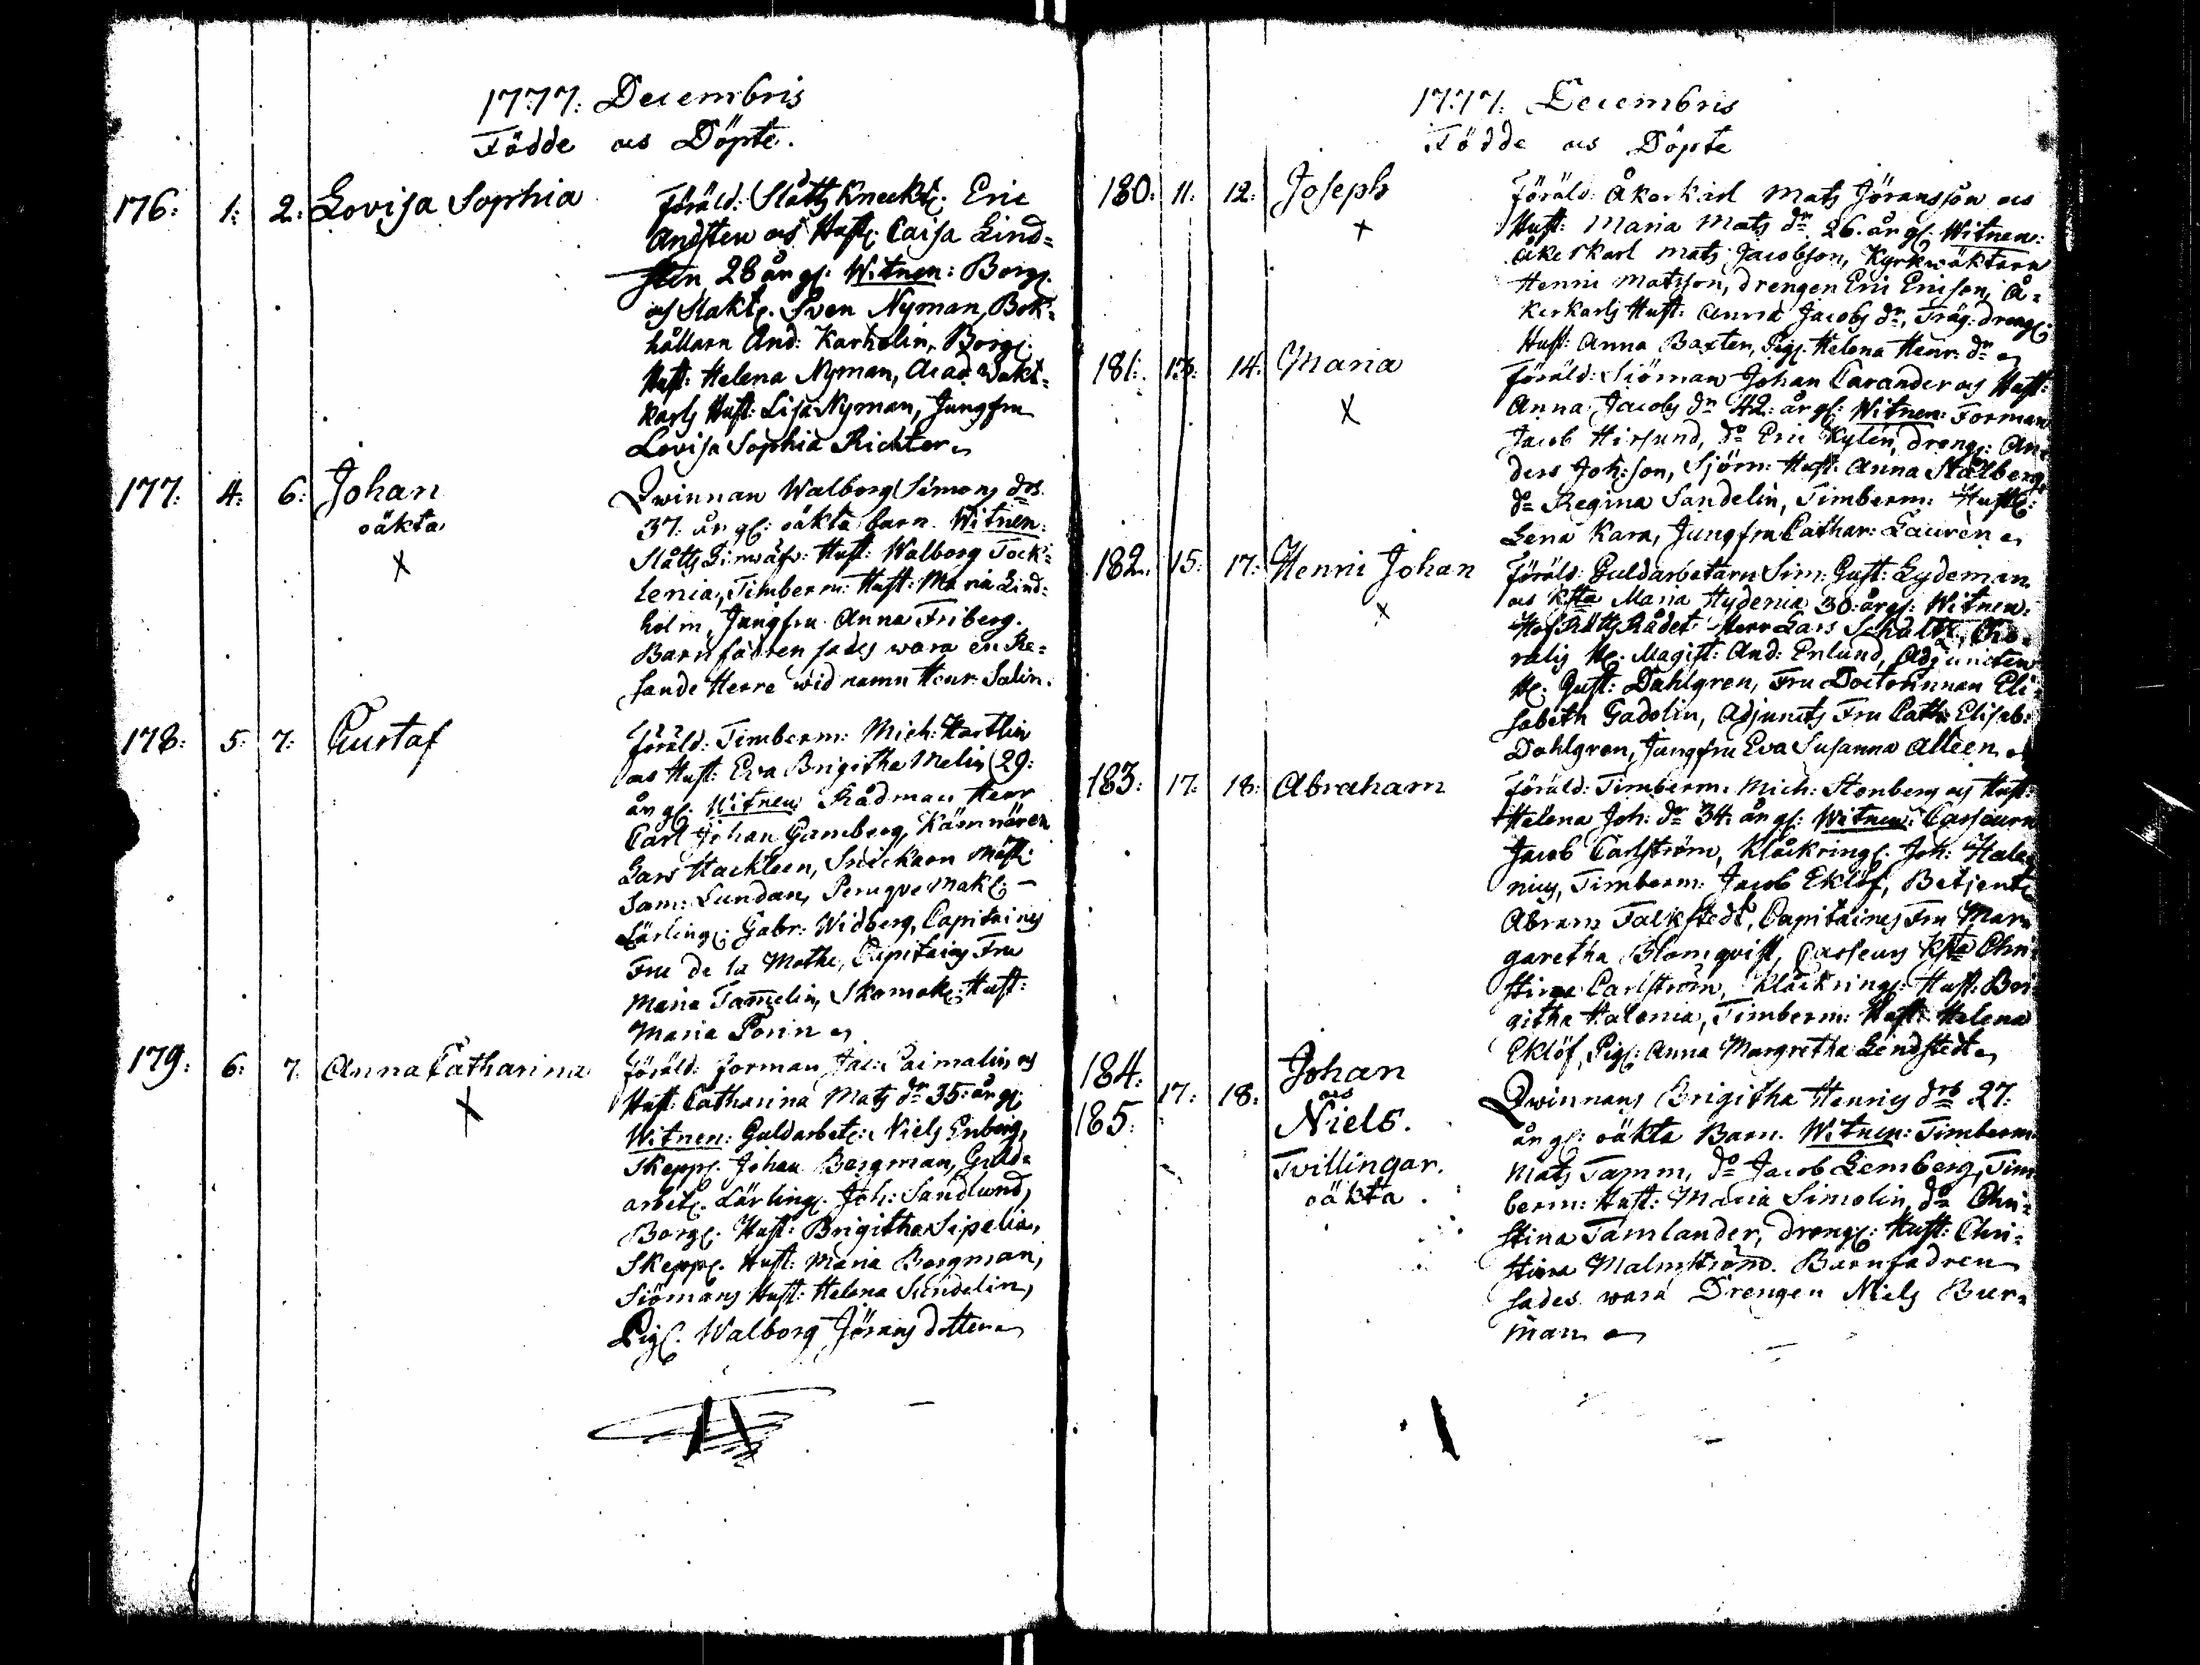 1777. Decembris
Födde och Döpte.
176: 1: 2: Lovisa Sophia Föräld: Slåtts Kneckt: Eric
Andsten och Hust: Caisa Lind=
sten 28 år gl: Witnen: Borg:
och Slakt: Sven Nyman, Bok=
hållarn And: Karholin, Borg:
Hust: Helena Nyman, Acad: Wakt=
karls Hust: Lisa Nyman, Jungfru
Lovisa Sophia Richter
177: 4: 6: Johan Qwinnan Walborg Simons drs
oäkta 37: år gl: oäkta barn. Witnen:
X Slåtts Hust: Walborg Fock=
lenia, Timberm: Hust: Maria Lind=
holm, Jungfru Anna Friberg.
Barnfadren sades wara en Re=
sande Herre wid namn Henr: Salin.
178: 5: 7: Gustaf Föräld: Timberm: Mich: Hartlin
och Hust: Eva Brigitha Melin 29:
år gl: Witnen Rådman Herr
Carl Johan Gamberg, Kämnären
Lars Hackleen, Snickarn Mäst:
Sam: Lundan, Peruqvemak:
Lärling: Gabr: Widberg, Capitaines
Fru de la Mothe, Capitains Fru
Maria Tam̅elin, Skomak: Hust:
Maria Porin
179: 6: 7. Anna Catharina Föräld: Forman Jac: Caimalin och
X Hust: Catharina Mats dr 35: år gl:
Witnen: Guldarbet: Niels Enberg,
Skepp: Johan Bergman, Guld=
arbet: Lärling: Joh: Sandlund,
Borg: Hust: Brigitha Sipelia,
Skepp: Hust: Maria Bergman,
Siömans Hust: Helena Sundelin,
Pig: Walborg Jörans dotter
1777. Decembris
Födde och Döpte
180: 11: 12: Joseph Föräld: Åkerkarl Mats Jöransson och
X Hust: Maria Mats dr 26. år gl: Witnen:
Åkerkarl Mats Jacobson, Kyrkwäktarn
Henric Matsson, drengen Eric Ericson, Å=
kerkarls Hust: Anna Jacobs dr, Träg: dreng:
Hust: Anna Baxten, Pig: Helena Henr: dr
181: 13: 14: Maria Föräld: Siöman Johan Carander och Hust:
X Anna Jacobs dr 42: år gl: Witnen: Forman
Jacob Hirsund, do Eric Kylén, dreng: An=
ders Joh:son, Sjöm: Hust: Anna Stålberg,
do Regina Sandelin, Timberm: Hust:
Lena Kara, Jungfru Cathar: Lauren
182. 15: 17: Henric Johan Föräld: Guldarbetarn Sim: Gust: Lydeman
X och Ksta Maria Hydenia 30: år gl: Witnen:
Hof Rätts Rådet Herr Lars Schultz, Tho=
ralis H: Magist: And: Enlund, Adjuncten
H: Gust: Dahlgren, Fru Doctorinnan Eli=
sabeth Gadolin, Adjuncts Fru Cath: Elisab:
Dahlgren, Jungfru Eva Susanna Alleen
183: 17: 18: Abraham Föräld: Timberm: Mich: Stenberg och Hust:
Helena Joh: dr 34: år gl: Witnen: Casseurn
Jacob Carlström, Klåckring: Joh: Hale=
nius, Timberm: Jacob Eklöf, Betjent:
Abram Falkstedt, Capitaines Fru Mar=
garetha Blomqvist, Casseurs Ksta Chri=
stina Carlström, Klåckring: Hust: Bri=
githa Halenia, Timberm: Hust: Helena
Eklöf, Pig: Anna Margretha Lindstedt
184: 17: 18: Johan Qwinnans Brigitha Henrics drs 27:
och
185: Niels. år gl: oäkta Barn. Witnen: Timberm:
Tvillingar. Mats Tamm, do Jacob Lemberg, Tim
oäkta. berm: Hust: Maria Simolin, do Chri=
stina Tamlander, dreng: Hust: Chri=
stina Malmström. Barnfadren
sades wara Drengen Niels Bur=
man